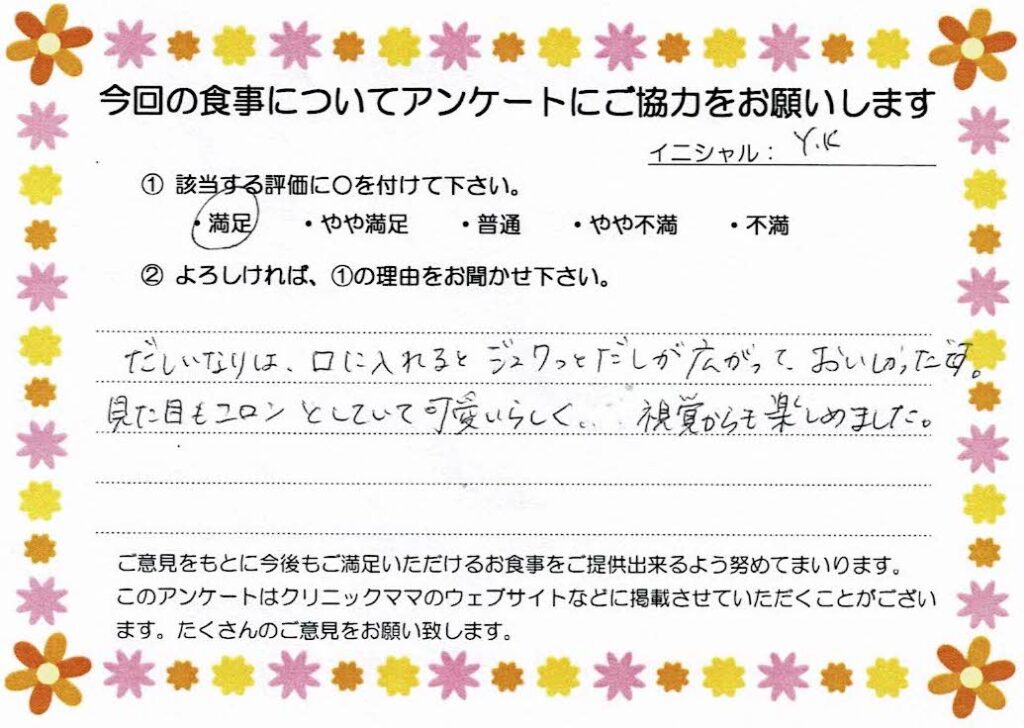 今回の食事についてアンケートにご協力をお願いします
イニシャル： Y.K
① 該当する評価に〇を付けて下さい。
・満足 ・やや満足 ・普通 ・やや不満 ・不満
② よろしければ、①の理由をお聞かせ下さい。
だしいなりは、口に入れるとジュワっとだしが広がって、おいしかったです。
見た目もコロンとしていて可愛いらしく、視覚からも楽しめました。
ご意見をもとに今後もご満足いただけるお食事をご提供出来るよう努めてまいります。
このアンケートはクリニックママのウェブサイトなどに掲載させていただくことがござい
ます。たくさんのご意見をお願い致します。